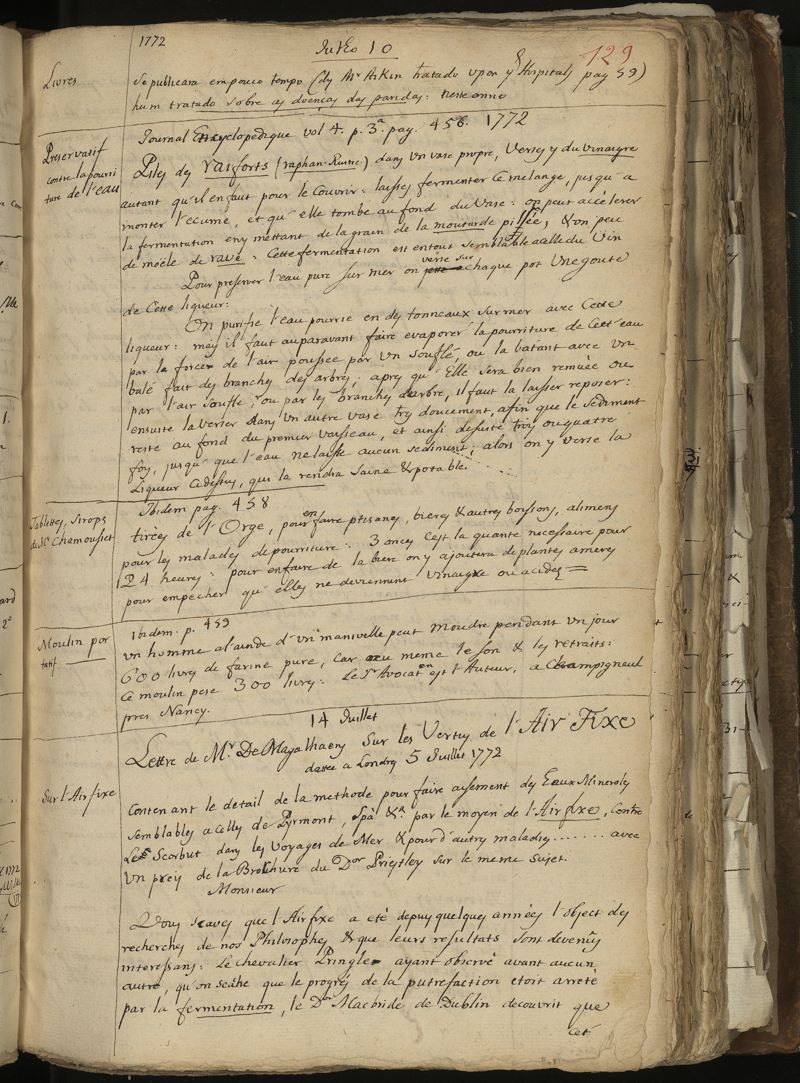 1772
Julho 10
129
Livres
Se publicara em pouco tempo (dy Mr Aikin tratado upon ye Hospitals pag 59)
hum tratado sobre as doenças das paridas: neste anno
Preservatif
contre la pourri
ture de l'eau
Journal Encyclopedique vol 4. p. 3.a pag. 456. 1772
Piles des raiforts (raphan. Rustic.) dans un vase propre, versez y du vinaigre
autant qu'il en faut pour le couvrir: laisses fermenter ce melange, jusqu'a
monter l'ecume, et qu'elle tombe au fond du Vase: on peut accelerer
la fermentation en y mettant de la grain de la moutarde pillée, & un peu
de moéle de rave. Cette fermentation est entout semblable a celle du Vin
Pour preserver l'eau pure sur mer on verse sur chaque pot une goute
de Cette liqueur:
On purifie l'eau pourrie en des tonneaux sur mer avec Cette
liqueur: mais il faut auparavant faire evaporer la pourriture de Cett'eau
par la force de l'air poussée par un souflé, ou la batant avec un
balé fait des branches des arbres; apres qu'Elle sera bien remuée ou
par l'air souflé, ou par les branches d'arbre, il faut la laisser reposer:
ensuite la verser dans un autre vase tres doucement, afin que le sediment
reste au fond du premier vaisseau, et ainsi desuite trois ou quatre
fois, jusqu'que l'eau ne laisse aucun sediment; alors on y verse la
Liqueur Cidessus, qui la rendra saine & potable.
Tablettes, sirops
de Mr Chamousset
Ibidem pag. 458
tirées de l'Orge, pour en faire ptisanes, bieres & autres boissons, alimens
pour les malades de pourriture: 3 onces c'est la quantité necessaire pour
24 heures: pour en faire de la biere on y ajoutera de plantes ameres
pour empecher qu'elles ne deviennent vinaigre ou acides =
Moulin por
tatif
Ibidem. p. 459
un homme al'aude d'un manivelle peut moudre pendant un jour
600 livres de farine pure, car meme le son & les retraits:
Ce moulin pese 300 livres: Le Sr Avocat en est l'Auteur, a Champigneul
pres Nancy.
14 Juillet
Lettre de Mr De Magalhaens Sur les Vertus de l'Air Fixe
dattée a Londres 5 Juillet 1772
Sur l'Air fixe
Contenant le detail de la methode pour faire aisement des Eaux Minerales
semblables a celles de Pyrmont, Spâ &a par le moyen de l'Air fixe, contre
Le Scorbut dans les voyages de Mer & pour d'autres maladies ....... avec
un precis de la Brochure du Dor Priestley sur le meme sujet.
Monsieur
Vous scaves que l'Air fixe a eté depuis quelques années l'object des
recherches de nos Philosophes & que leurs resultats sont devenus
interessans: Le chevalier Pringle ayant observé avant aucun
autre, qu'on scache que le progrés de la putrefaction etoit arreté
par la fermentation, le Dor Macbride de Dublin decouvrit que
cet